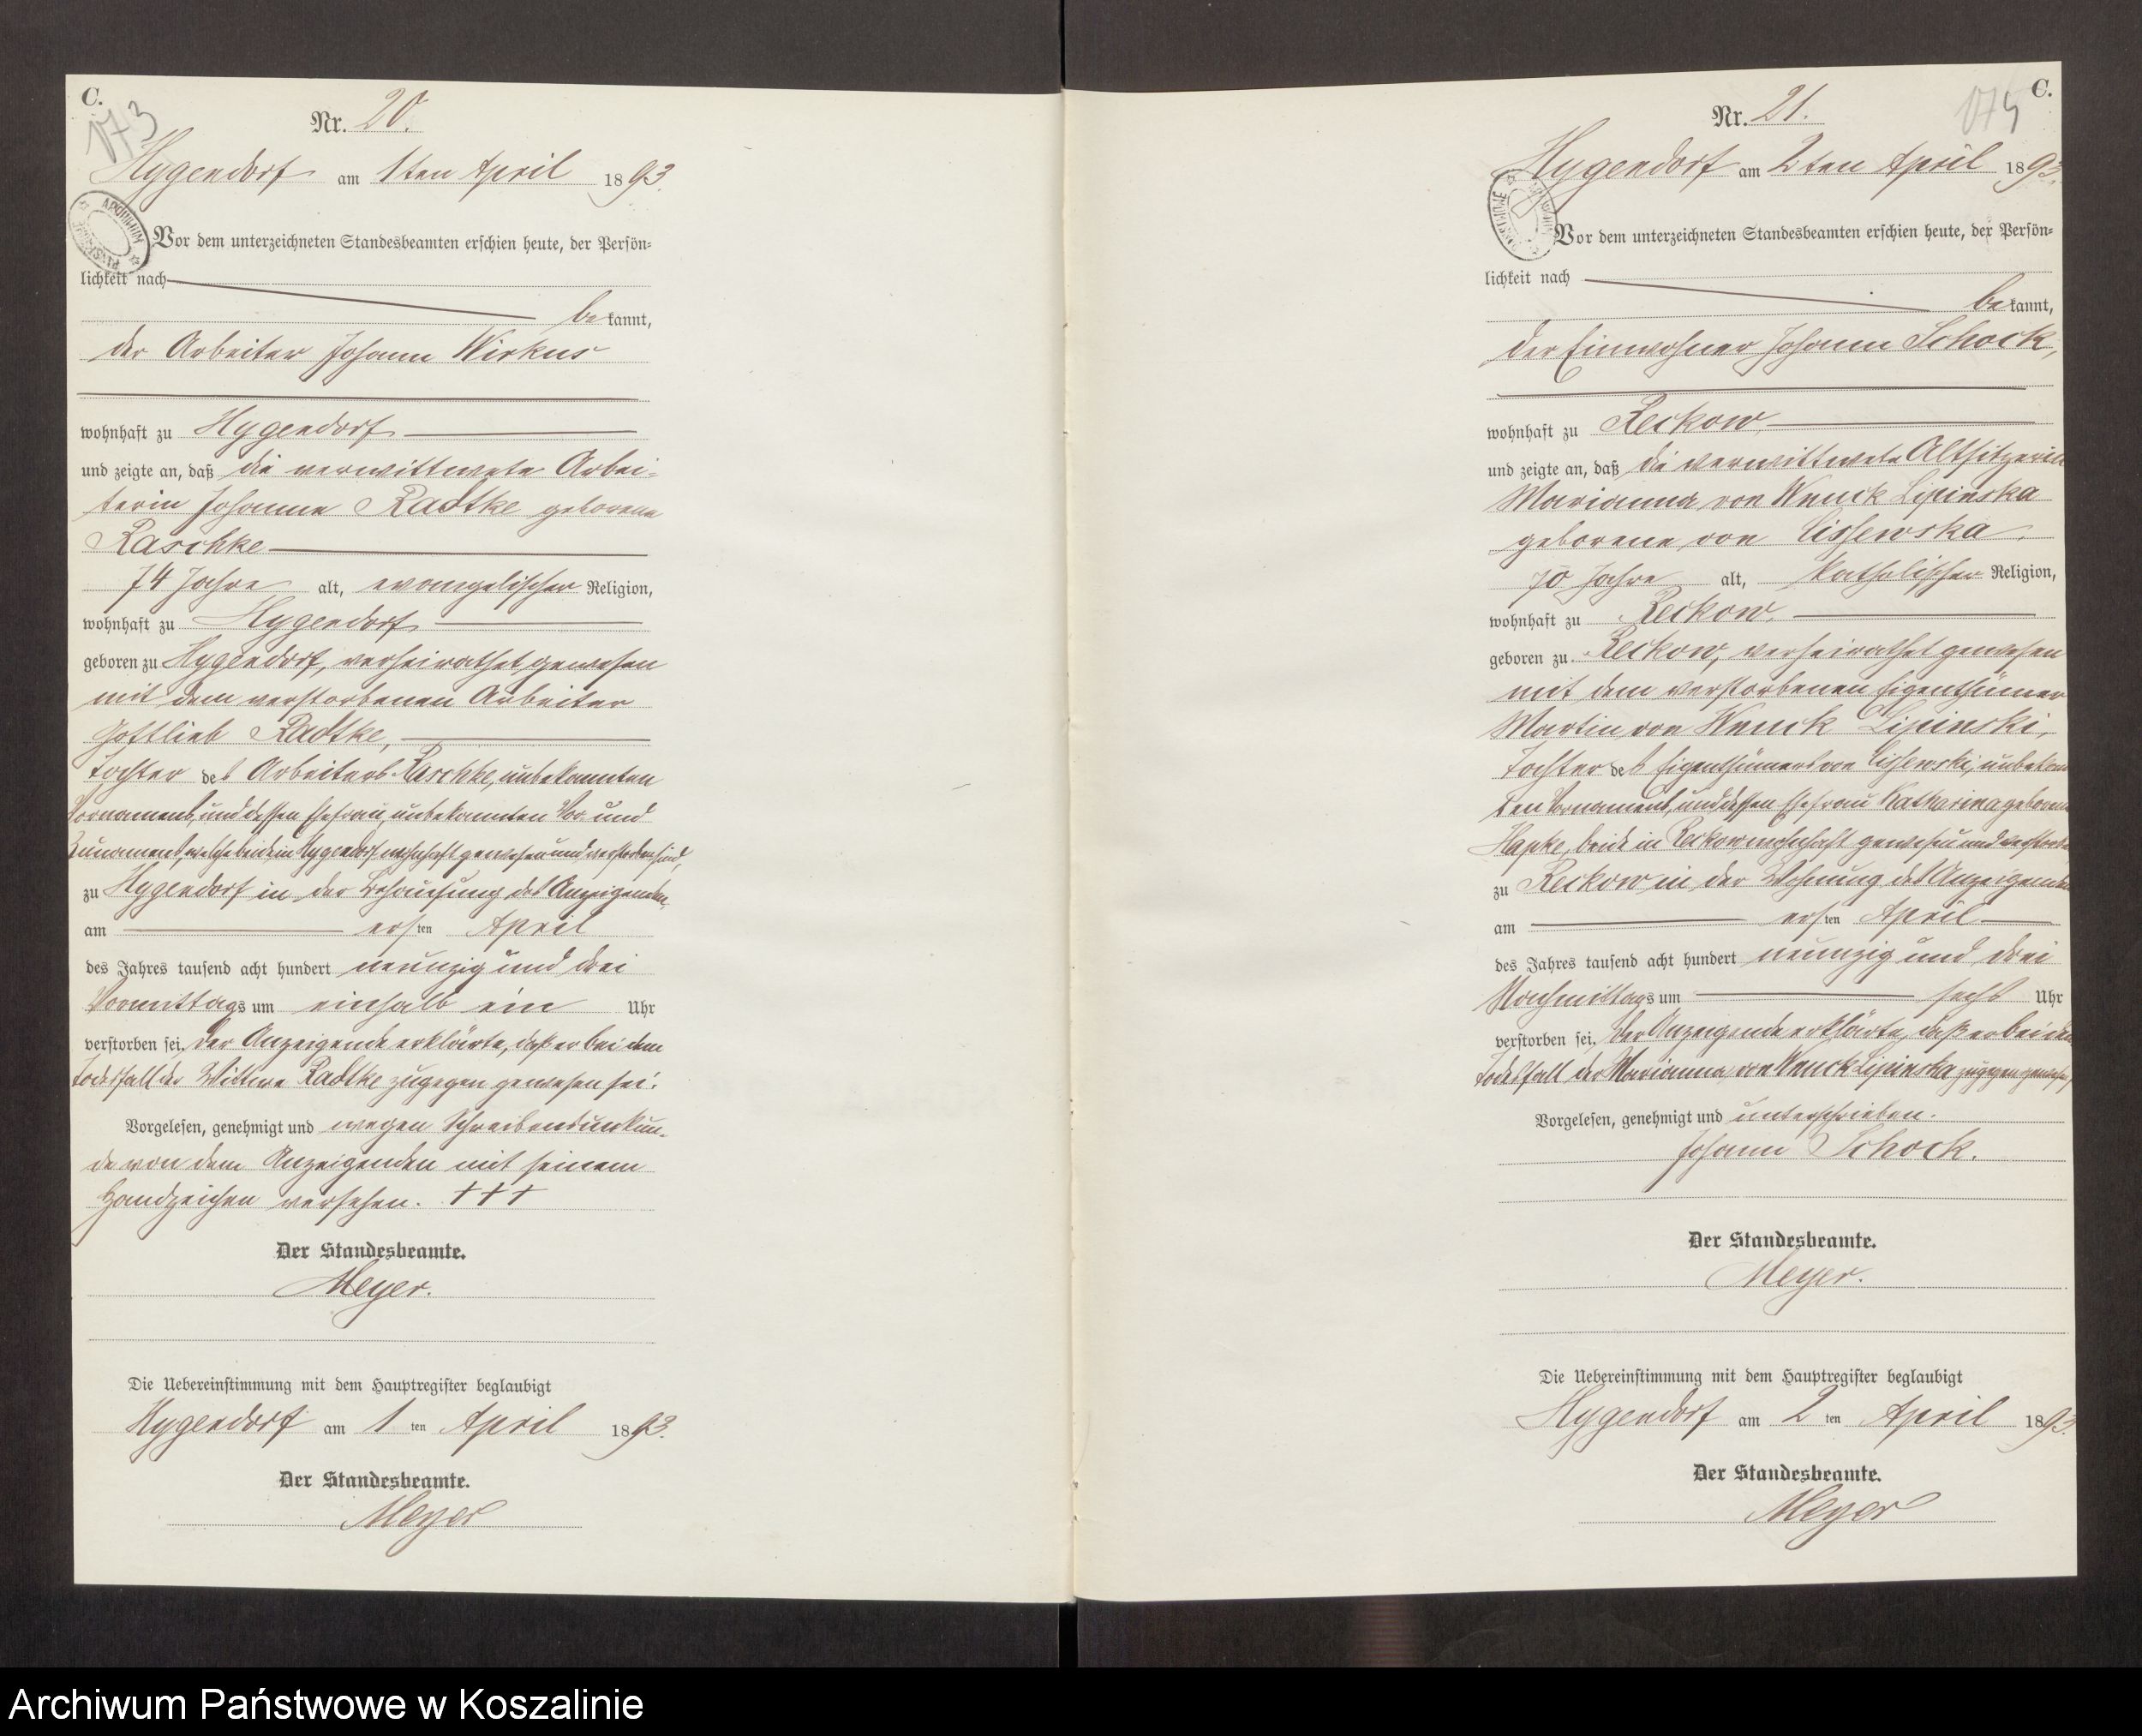 C.
173
Nr. 20.
Hygendorf am 1ten April 1893.
Vor dem unterzeichneten Standesbeamten erschien heute, der Persön-
lichkeit nach
bekannt,
der Arbeiter Johann Wirkus
wohnhaft zu Hygendorf
und zeigte an, daß die verwittwete Arbei-
terin Johanne Radtke geborene
Raschke
74 Jahre alt, evangelischer Religion,
wohnhaft zu Hygendorf
geboren zu Hygendorf, verheirathet gewesen
mit dem verstorbenen Arbeiter
Gottlieb Radtke,
Tochter des Arbeiters Raschke, unbekannten
Vornamens, und dessen Ehefrau, unbekannten Vor- und
Zunamens, welche beide in Hygendorf wohnhaft gewesen und verstorben sind,
zu Hygendorf in der Behausung des Anzeigenden,
am ersten April
des Jahres tausend acht hundert neunzig und drei
Vormittags um einhalb ein Uhr
verstorben sei. Der Anzeigende erklärte, daß er bei dem
Todesfall der Wittwe Radtke zugegen gewesen sei.
Vorgelesen, genehmigt und wegen Schreibensunkun-
de von dem Anzeigenden mit seinem
Handzeichen versehen. +++
Der Standesbeamte.
Meyer.
Die Uebereinstimmung mit dem Hauptregister beglaubigt
Hygendorf am 1ten April 1893.
Der Standesbeamte.
Meyer
C.
Nr. 21.
Hygendorf am 2ten April 1893.
Vor dem unterzeichneten Standesbeamten erschien heute, der Persön-
lichkeit nach
bekannt,
der Einwohner Johann Schock,
wohnhaft zu Reckow
und zeigte an, daß die verwittwete Altsitzerin
Marianna von Wnuck Lipinska
geborene von Cissewska,
70 Jahre alt, katholischer Religion,
wohnhaft zu Reckow,
geboren zu Reckow, verheirathet gewesen
mit dem verstorbenen Eigenthümer
Martin von Wnuck Lipinski,
Tochter des Eigenthümers von Cissewski, unbekann-
ten Vornamens, und dessen Ehefrau Katharina geborene
Hapke, beide in Reckow wohnhaft gewesen und verstorben
zu Reckow in der Wohnung des Anzeigenden
am ersten April
des Jahres tausend acht hundert neunzig und drei
Nachmittags um sechs Uhr
verstorben sei. Der Anzeigende erklärte, daß er bei dem
Todesfall der Marianna von Wnuck Lipinska zugegen gewesen,
Vorgelesen, genehmigt und unterschrieben.
Johann Schock.
Der Standesbeamte.
Meyer.
Die Uebereinstimmung mit dem Hauptregister beglaubigt
Hygendorf am 2ten April 1893.
Der Standesbeamte.
Meyer
Archiwum Państwowe w Koszalinie